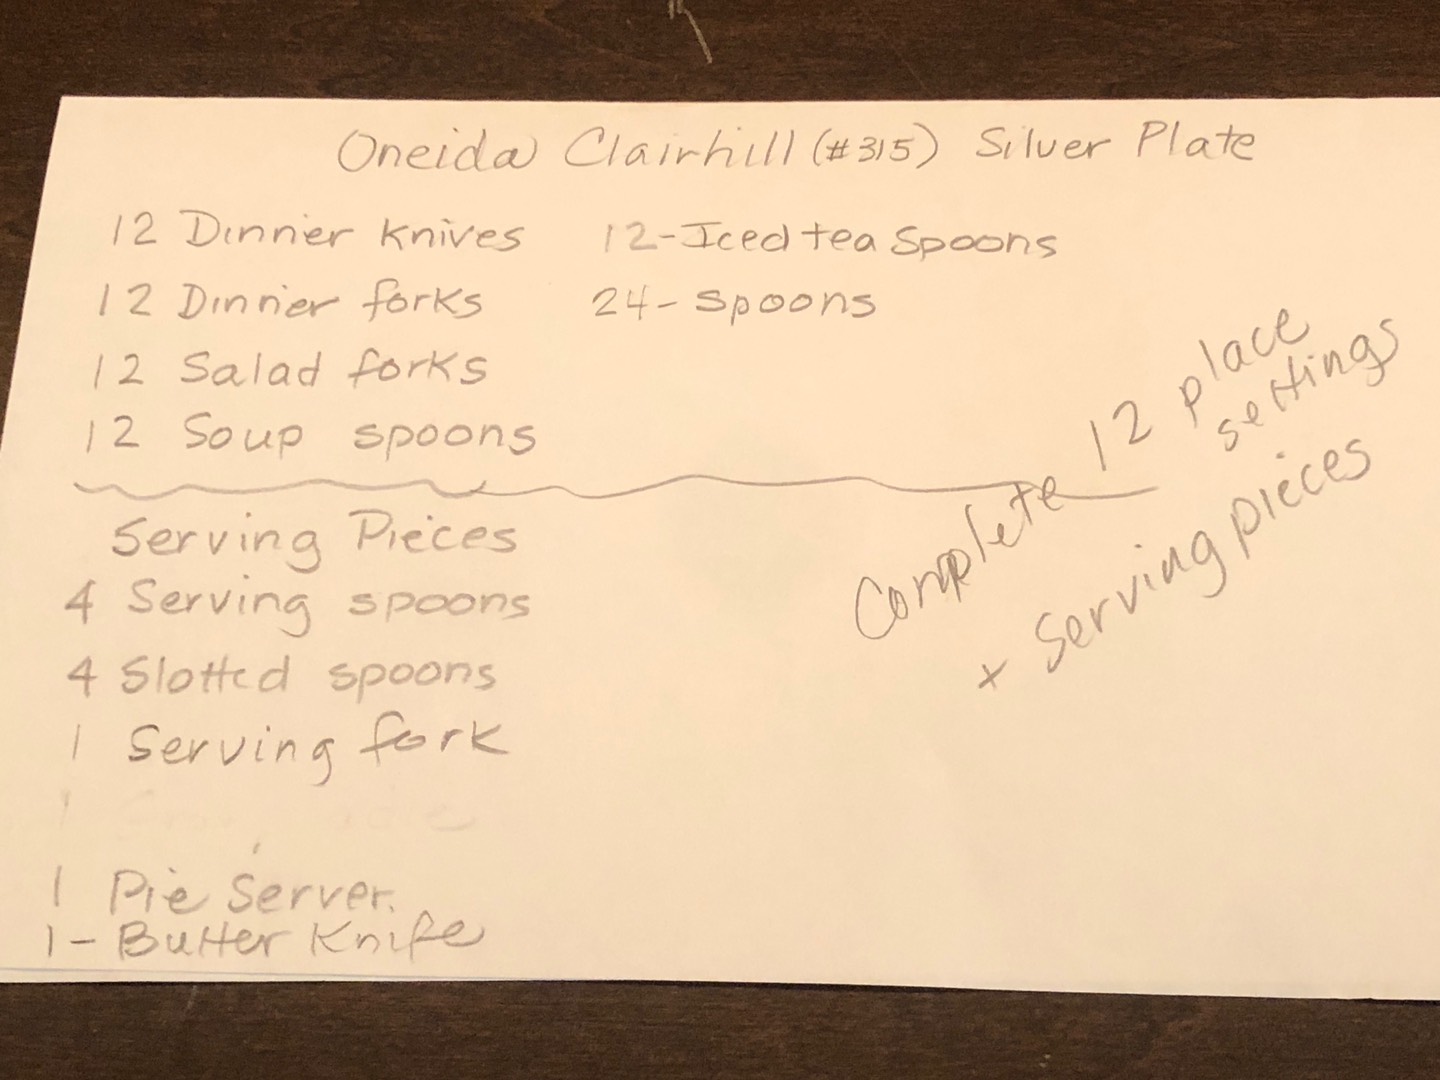 Oneida Clairhill (#315) Silver Plate
12 Dinner knives
12 Dinner forks
12 Salad forks
12 Soup spoons
12-Iced tea Spoons
24- spoons
Complete 12 place settings
+ Serving pieces
Serving Pieces
4 Serving spoons
4 Slotted spoons
1 Serving fork
1 Pie Server.
1- Butter Knife